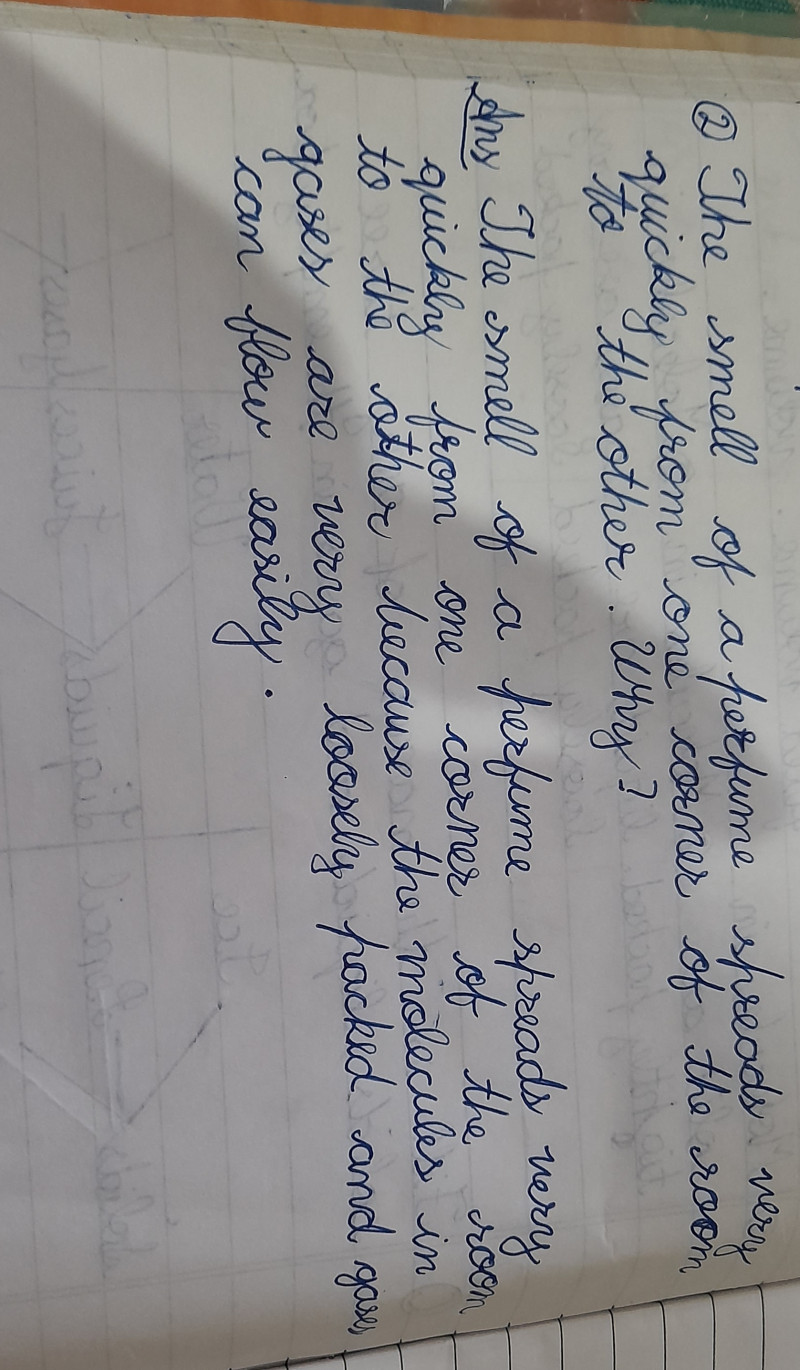 ② The smell of a perfume spreads very
quickly from one corner of the room
to the other. Why?
Ans The smell of a perfume spreads very
quickly from one corner of the room
to the other because the molecules in
gases are very loosely packed and gases
can flow easily.